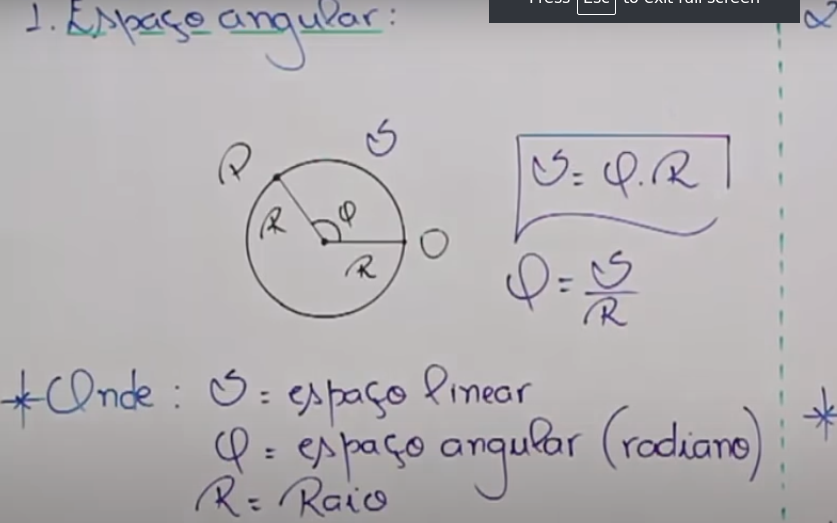 1. Espaço angular:
Press Esc to exit full screen
2
P
S
R
φ
R
O
S = φ.R
φ = S/R
* Onde: S = espaço linear
φ = espaço angular (radiano)
R = Raio
*